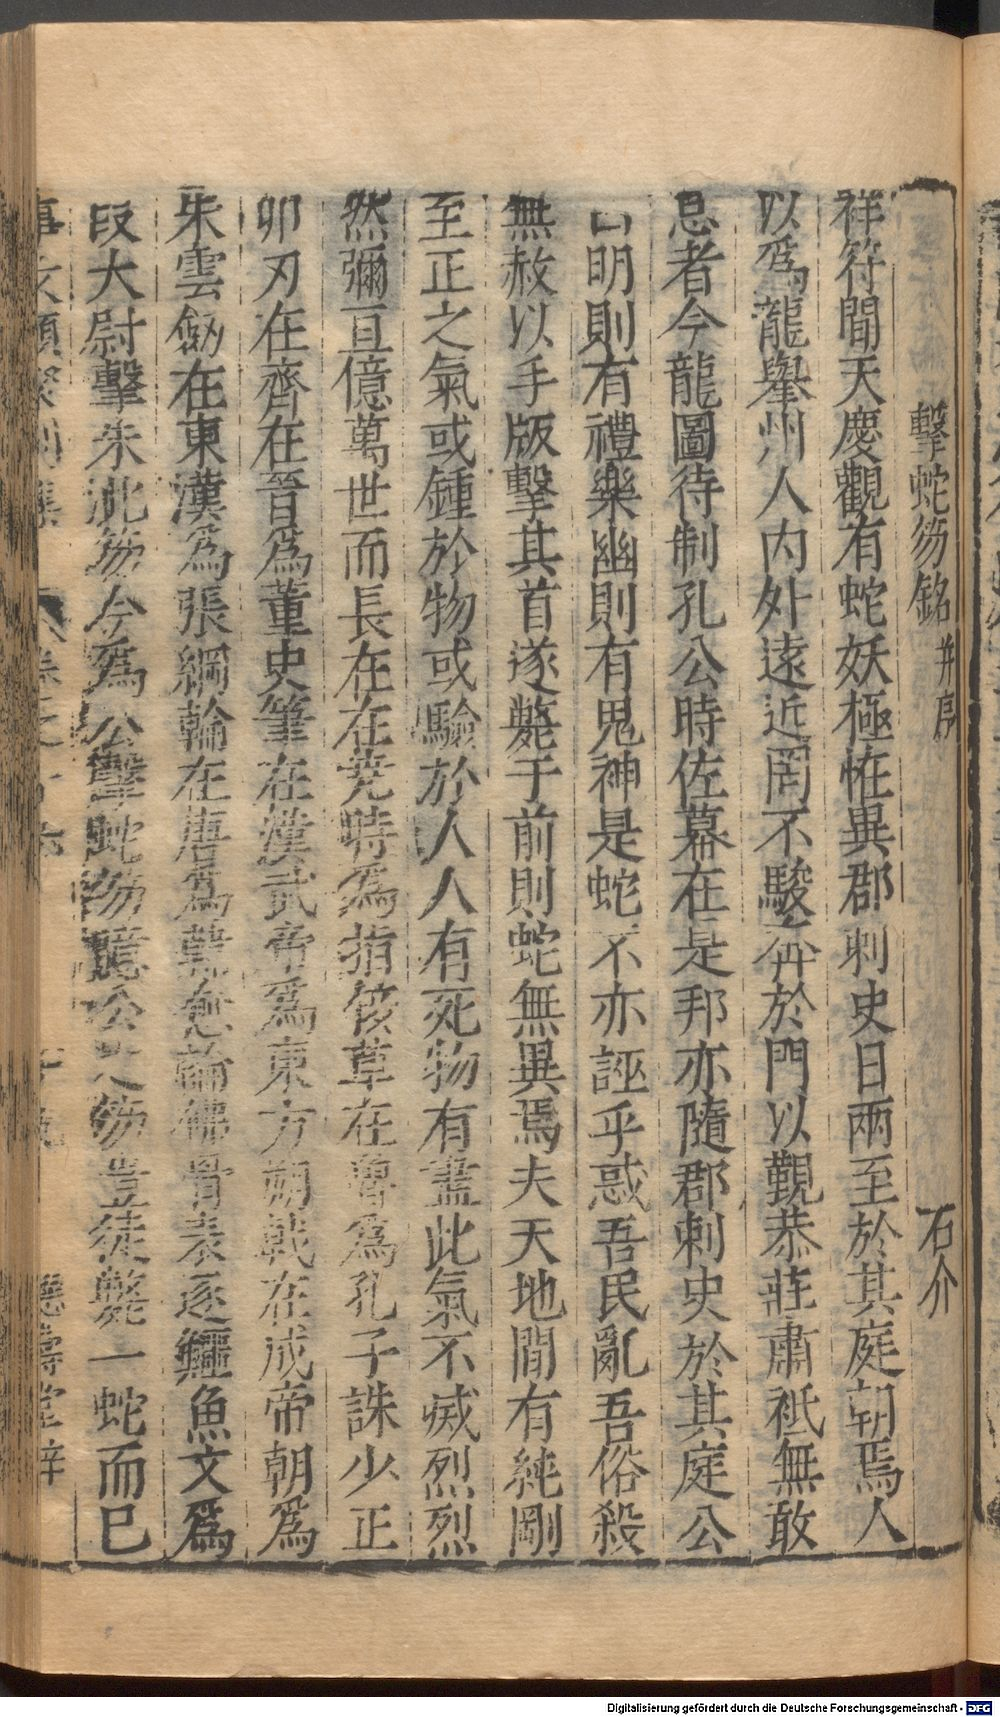 擊蛇笏銘 并序 石介
祥符間天慶觀有蛇妖極恠異郡刺史日兩至於其庭朝焉人
以爲龍舉州人内外遠近罔不駿奔於門以覲恭莊肅祗無敢
怠者今龍圖待制孔公時佐幕在是邦亦隨郡刺史於其庭公
曰明則有禮樂幽則有鬼神是蛇不亦誣乎惑吾民亂吾俗殺
無赦以手版擊其首遂斃于前則蛇無異焉夫天地間有純剛
至正之氣或鍾於物或驗於人人有死物有盡此氣不滅烈烈
然彌亘億萬世而長在在尭時爲指佞草在魯爲孔子誅少正
卯刃在齊在晉爲董史筆在漢武帝爲東方朔戟在成帝朝爲
朱雲劒在東漢爲張綱輪在唐爲韓愈論佛骨表逐鱷魚文爲
段大尉擊朱泚笏今爲公擊蛇笏噫公之笏豈徒斃一蛇而已
事文類聚別集 卷之
Digitalisierung gefördert durch die Deutsche Forschungsgemeinschaft - DFG